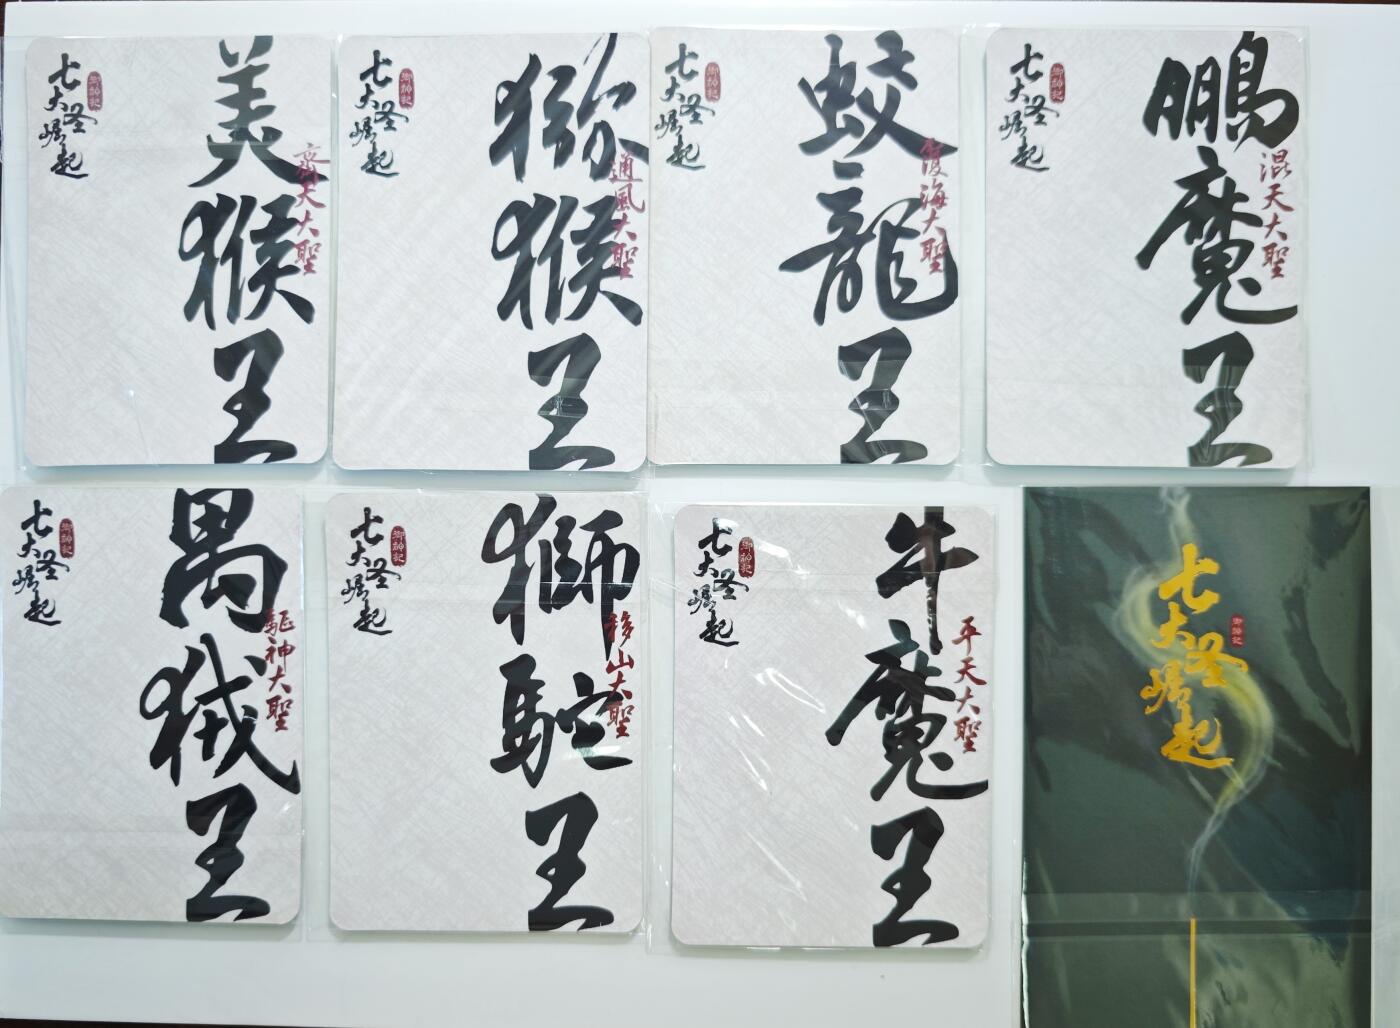 七大圣崛起
御神记
美猴王
齊天大聖
七大圣崛起
御神记
猕猴王
通風大聖
七大圣崛起
御神记
蛟龍王
覆海大聖
七大圣崛起
御神记
鵬魔王
混天大聖
七大圣崛起
御神记
禺狨王
驅神大聖
七大圣崛起
御神记
獅駝王
移山大聖
七大圣崛起
御神记
牛魔王
平天大聖
七大圣崛起
御神记